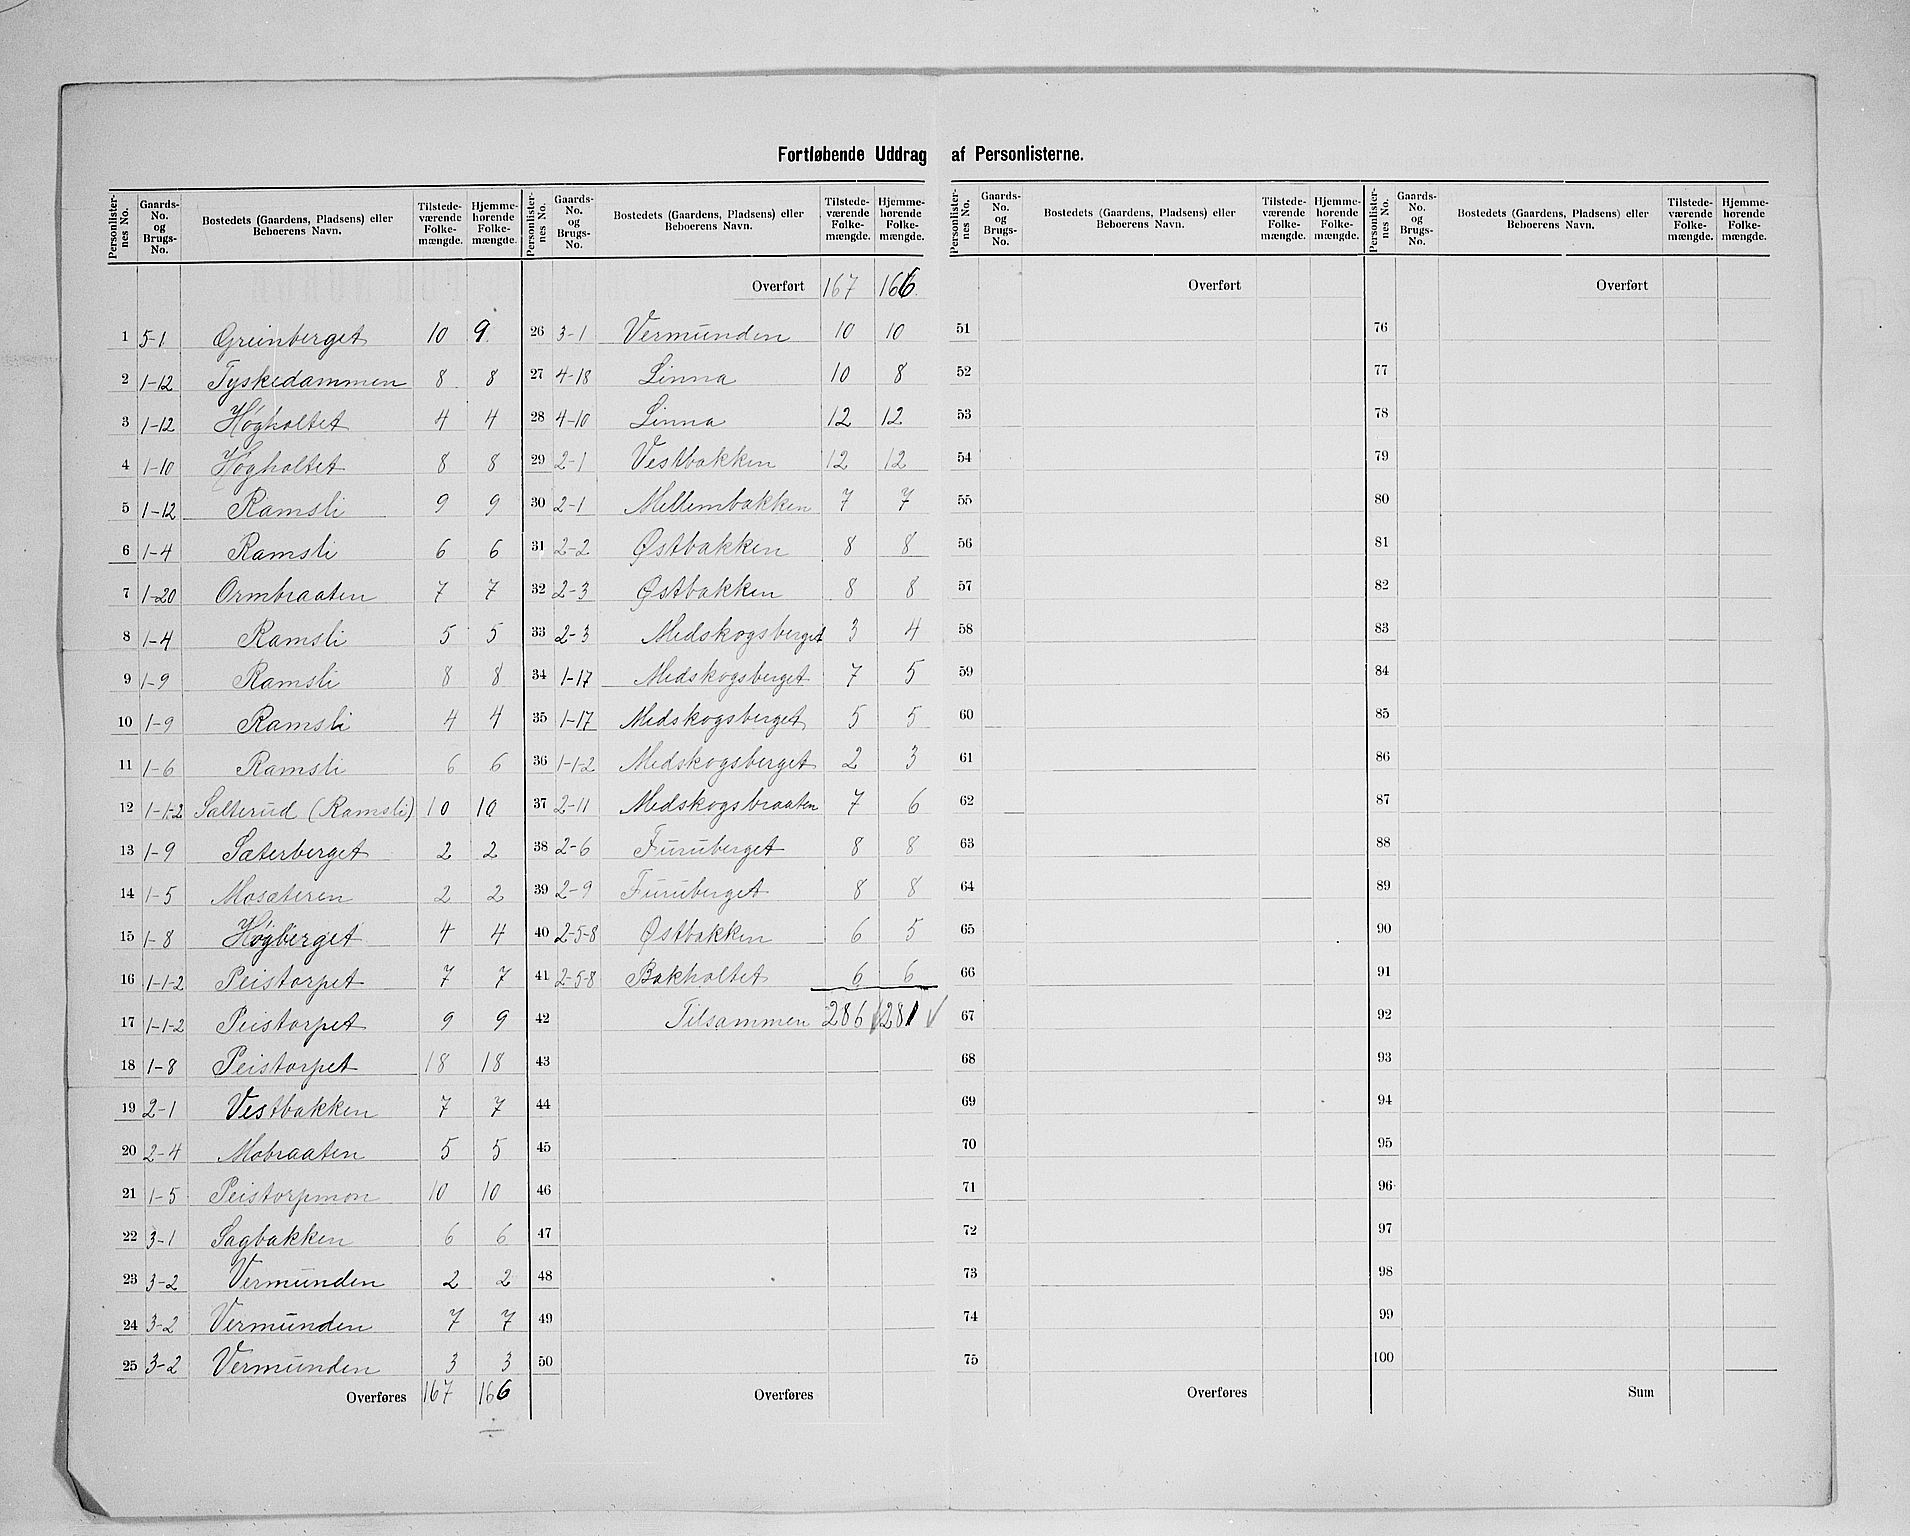 Fortløbende Uddrag af Personlisterne.
Personlister-nes No. Gaards-No. og Brugs-No. Bostedets (Gaardens, Pladsens) eller Beboerens Navn. Tilstede-værende Folke-mængde. Hjemme-hørende Folke-mængde.
1 5-1 Greinberget 10 9
2 1-12 Tyskedammen 8 8
3 1-12 Høgholtet 4 4
4 1-10 Høgholtet 8 8
5 1-12 Ramsli 9 9
6 1-4 Ramsli 6 6
7 1-20 Ormbraaten 7 7
8 1-4 Ramsli 5 5
9 1-9 Ramsli 8 8
10 1-9 Ramsli 4 4
11 1-6 Ramsli 6 6
12 1-1-2 Salterud (Ramsli) 10 10
13 1-9 Sæterberget 2 2
14 1-5 Mosæteren 2 2
15 1-8 Høgberget 4 4
16 1-1-2 Peistorpet 7 7
17 1-1-2 Peistorpet 9 9
18 1-8 Peistorpet 18 18
19 2-1 Vestbakken 7 7
20 2-4 Mobraaten 5 5
21 1-5 Peistorpmon 10 10
22 3-1 Sagbakken 6 6
23 3-2 Vermunden 2 2
24 3-2 Vermunden 7 7
25 3-2 Vermunden 3 3
Overføres 167 166
Personlister-nes No. Gaards-No. og Brugs-No. Bostedets (Gaardens, Pladsens) eller Beboerens Navn. Tilstede-værende Folke-mængde. Hjemme-hørende Folke-mængde.
Overført 167 166
26 3-1 Vermunden 10 10
27 4-18 Linna 10 8
28 4-10 Linna 12 12
29 2-1 Vestbakken 12 12
30 2-1 Mellembakken 7 7
31 2-2 Østbakken 8 8
32 2-3 Østbakken 8 8
33 2-3 Medskogsberget 3 4
34 1-17 Medskogsberget 7 5
35 1-17 Medskogsberget 5 5
36 1-1-2 Medskogsberget 2 3
37 2-11 Medskogsbraaten 7 6
38 2-6 Furuberget 8 8
39 2-9 Furuberget 8 8
40 2-5-8 Østbakken 6 5
41 2-5-8 Bakholtet 6 6
42 Tilsammen 286 281
43
44
45
46
47
48
49
50
Overføres
Personlister-nes No. Gaards-No. og Brugs-No. Bostedets (Gaardens, Pladsens) eller Beboerens Navn. Tilstede-værende Folke-mængde. Hjemme-hørende Folke-mængde.
Overført
51
52
53
54
55
56
57
58
59
60
61
62
63
64
65
66
67
68
69
70
71
72
73
74
75
Overføres
Personlister-nes No. Gaards-No. og Brugs-No. Bostedets (Gaardens, Pladsens) eller Beboerens Navn. Tilstede-værende Folke-mængde. Hjemme-hørende Folke-mængde.
Overført
76
77
78
79
80
81
82
83
84
85
86
87
88
89
90
91
92
93
94
95
96
97
98
99
100
Sum